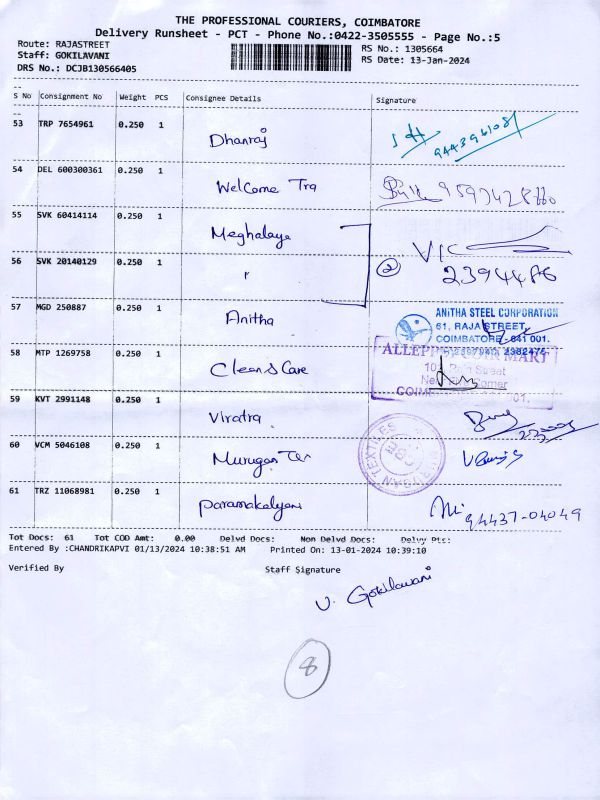 THE PROFESSIONAL COURIERS, COIMBATORE
Delivery Runsheet - PCT - Phone No.:0422-3505555 - Page No.:5
Route: RAJASTREET
Staff: GOKILAVANI
DRS No.: DCJB130566405
RS No.: 1305664
RS Date: 13-Jan-2024
S No Consignment No Weight PCS Consignee Details Signature
53 TRP 7654961 0.250 1 Dhanraj
54 DEL 600300361 0.250 1 Welcome Tra
55 SVK 60414114 0.250 1 Meghalaya
56 SVK 20140129 0.250 1 " 2 2394486
57 MGD 250887 0.250 1 Anitha
ANITHA STEEL CORPORATION
61, RAJA STREET,
COIMBATORE - 641 001.
58 MTP 1269758 0.250 1 Clean & Care
59 KVT 2991148 0.250 1 Viratra
60 VCM 5046108 0.250 1 Murugan Tex
61 TRZ 11068981 0.250 1 Paramakalyani 94437-04049
Tot Docs: 61 Tot COD Amt: 0.00 Delvd Docs: Non Delvd Docs: Delvy Pts:
Entered By :CHANDRIKAPVI 01/13/2024 10:38:51 AM Printed On: 13-01-2024 10:39:10
Verified By Staff Signature
V. Gokilavani
8